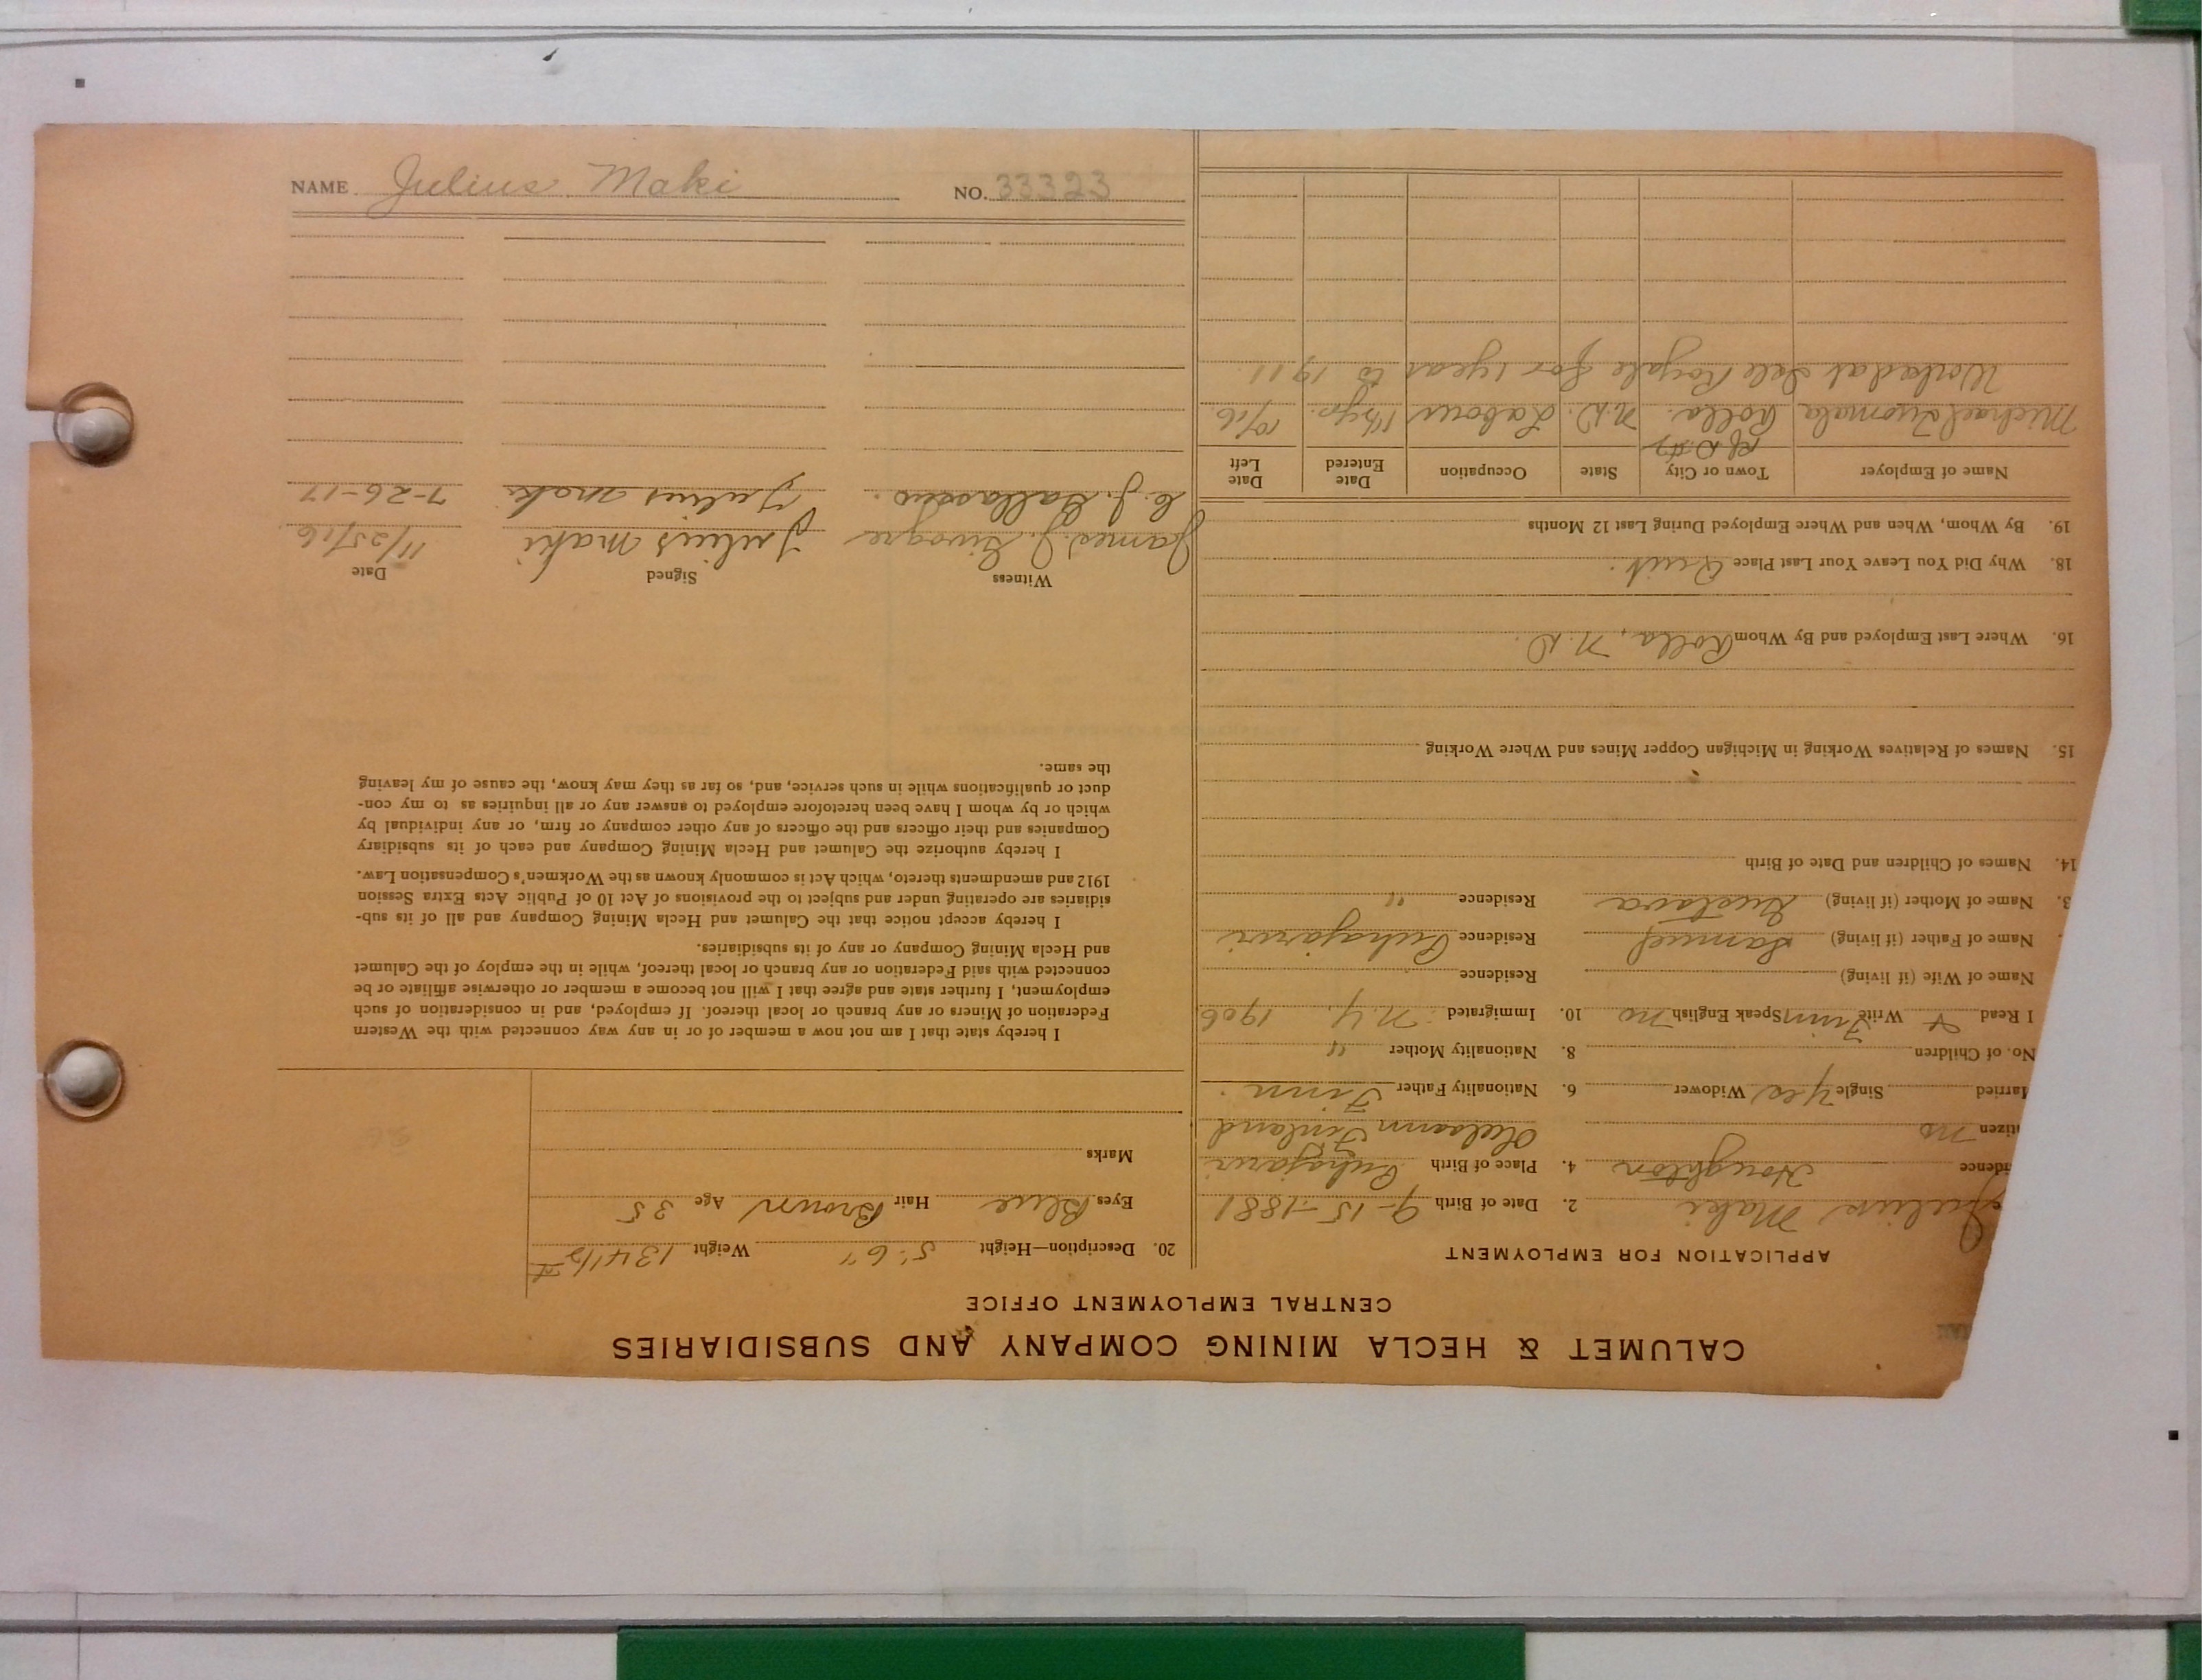 CALUMET & HECLA MINING COMPANY AND SUBSIDIARIES
CENTRAL EMPLOYMENT OFFICE
APPLICATION FOR EMPLOYMENT
Julius Maki 2. Date of Birth 9-15-1881
idence Houghton 4. Place of Birth
itizen no Finland
Married Single Yes Widower 6. Nationality Father Finn.
No. of Children 8. Nationality Mother "
I Read & Write Finn Speak English no 10. Immigrated N.Y. 1906
Name of Wife (if living) Residence
Name of Father (if living) Samuel Residence
3. Name of Mother (if living) Residence "
14. Names of Children and Date of Birth
15. Names of Relatives Working in Michigan Copper Mines and Where Working
16. Where Last Employed and By Whom Rolla, N.D.
18. Why Did You Leave Your Last Place Quit.
19. By Whom, When and Where Employed During Last 12 Months
Name of Employer Town or City State Occupation Date Entered Date Left
Michael Rolla. N.D. Labour 10/16.
Worked at Isle Royale for 1 year to 1911.
20. Description—Height 5' 6" Weight 134 1/2 #
Eyes Blue Hair Brown Age 35
Marks
I hereby state that I am not now a member of or in any way connected with the Western
Federation of Miners or any branch or local thereof. If employed, and in consideration of such
employment, I further state and agree that I will not become a member or otherwise affiliate or be
connected with said Federation or any branch or local thereof, while in the employ of the Calumet
and Hecla Mining Company or any of its subsidiaries.
I hereby accept notice that the Calumet and Hecla Mining Company and all of its sub-
sidiaries are operating under and subject to the provisions of Act 10 of Public Acts Extra Session
1912 and amendments thereto, which Act is commonly known as the Workmen's Compensation Law.
I hereby authorize the Calumet and Hecla Mining Company and each of its subsidiary
Companies and their officers and the officers of any other company or firm, or any individual by
which or by whom I have been heretofore employed to answer any or all inquiries as to my con-
duct or qualifications while in such service, and, so far as they may know, the cause of my leaving
the same.
Witness Signed Date
James J. Julius Maki 11/25/16
J. Julius Maki 7-26-17
NAME Julius Maki NO. 33323